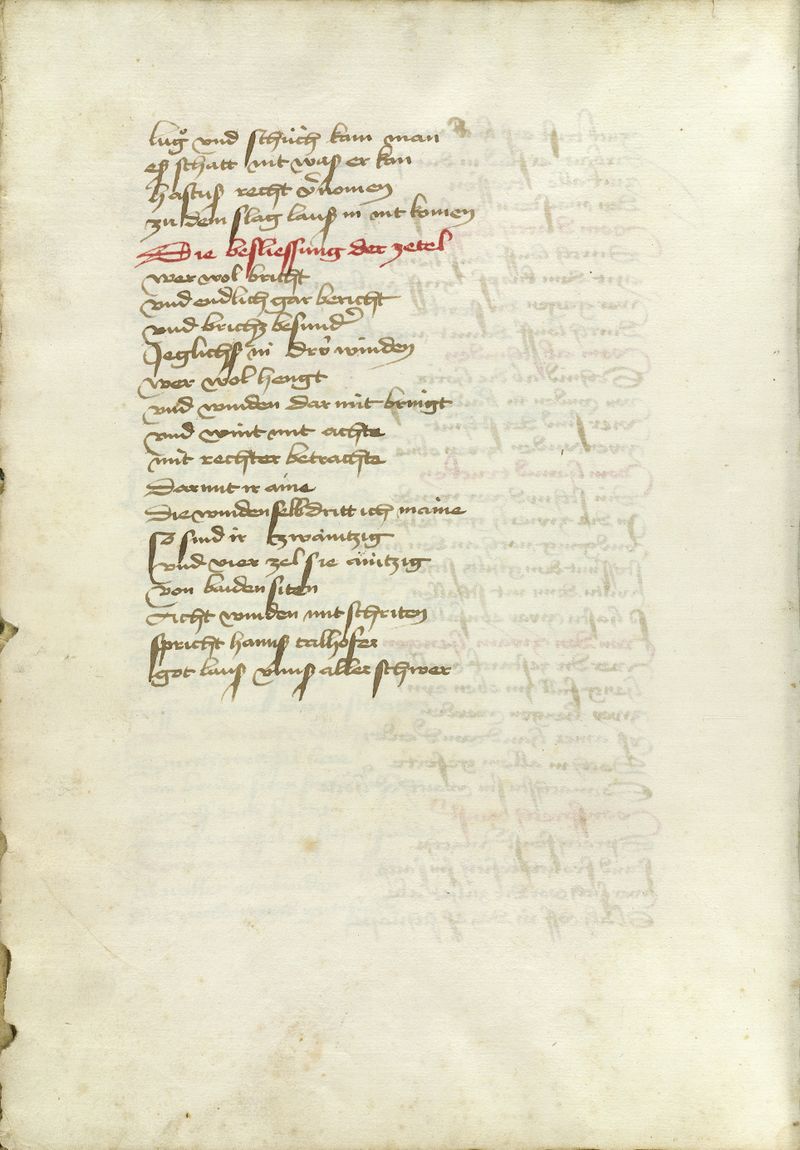 lug und schüch kain man
es schatt nit was er kan
Hastus recht v̄nomen
zu dem slag laus in nit komen
Die besliessung der zetel
wer wol bricht
und endlich gar bericht
und brichz besunder
Jeglichs in drÿ winden
wer wol hengt
und winden dar mit bringt
und wint mit achte
mit rechter betrachte
Dar mit ir aine
die winden selb dritt ich maine
so sind ir zwaintzig
und vier zel sie aintzig
von baiden siten
Acht winden mit schriten
spricht hanns talhofer
got laus unns aller schwer